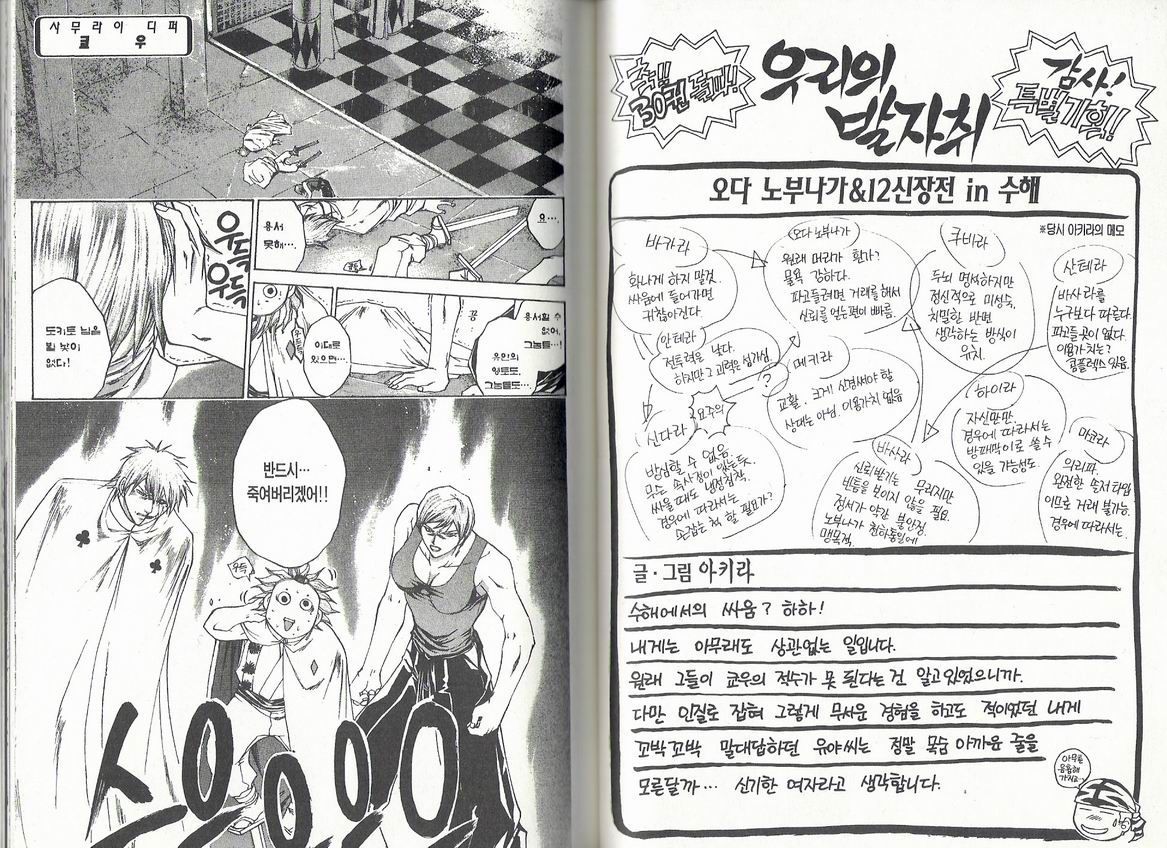 사무라이 디퍼
쿄우
요…
용서
못해…
우득
우득
도키토 님은
뵐 낯이
없다!
이대로
있으면…
용서할 수
없어,
그놈들…!
유안의
잉도도,
그놈들도…
반드시…
죽여버리겠어!!
우득
축!!
30권 돌파!
우리의
발자취
감사!
특별기획!!
오다 노부나가&12신장전 in 수해
※당시 아키라의 메모
바카라
화나게 하지 말것.
싸움에 들어가면
귀찮아진다.
오다 노부나가
원래 머리가 환가?
물욕 강하다.
파고들려면 거래를 해서
신뢰를 얻는편이 빠름.
쿠비라
두뇌 명석하지만
정신적으로 미성숙.
치밀한 반면
생각하는 방식이
유치.
산테라
바사라를
누구보다 따른다.
파고들곳이 없다.
이용가치는?
콤플렉스 있음.
안테라
전투력은 낮다.
하지만 그 괴력은 성가심.
?
메키라
교활. 크게 신경써야 할
상대는 아님. 이용가치 없음
요주의
신다라
방심할 수 없음.
무슨 속사정이 있는듯.
싸울 때도 냉정침착.
경우에 따라서는
손잡는 척 할 필요가?
하이라
자신만만
경우에 따라서는
방패막이로 쓸 수
있을 가능성도.
바사라
신뢰받기는 무리지만
빈틈을 보이지 않을 필요.
정서가 약간 불안정.
노부나가 천하통일에
맹목적.
마코라
의리파.
완전한 솔저 타입
이므로 거래 불가능.
경우에 따라서는.
글·그림 아키라
수해에서의 싸움? 하하!
내게는 아무래도 상관없는 일입니다.
원래 그들이 쿄우의 적수가 못 된다는 건 알고 있었으니까.
다만 인질로 잡혀 그렇게 무서운 경험을 하고도 적이었던 내게
꼬박꼬박 말대답하던 유야씨는 정말 목숨 아까운 줄을
모른달까… 신기한 여자라고 생각합니다.